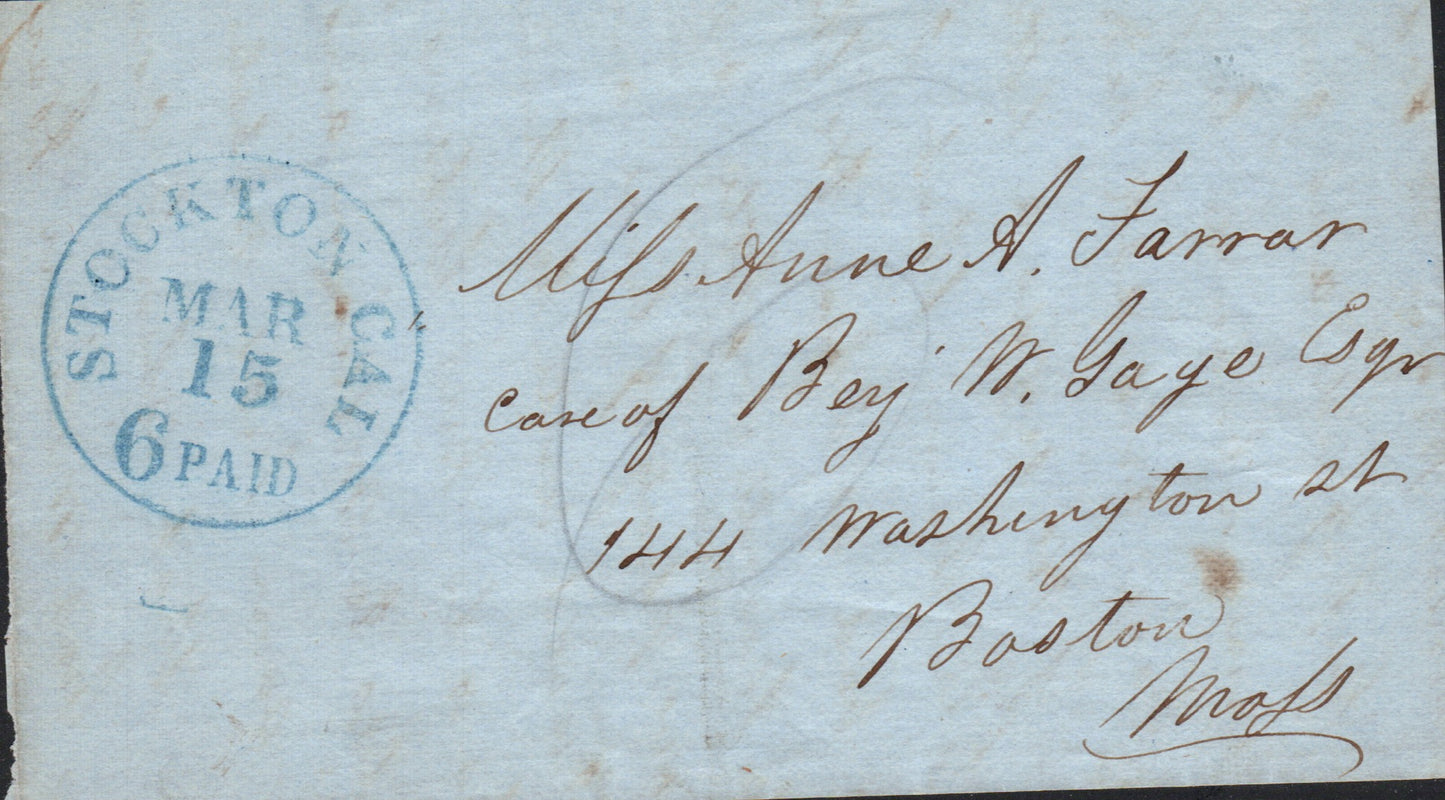 STOCKTON CAL
MAR
15
6 PAID
Miſs Anne A. Farrar
Care of Benj W. Gaye Esqr
144 Washington st
Boston
Maſs